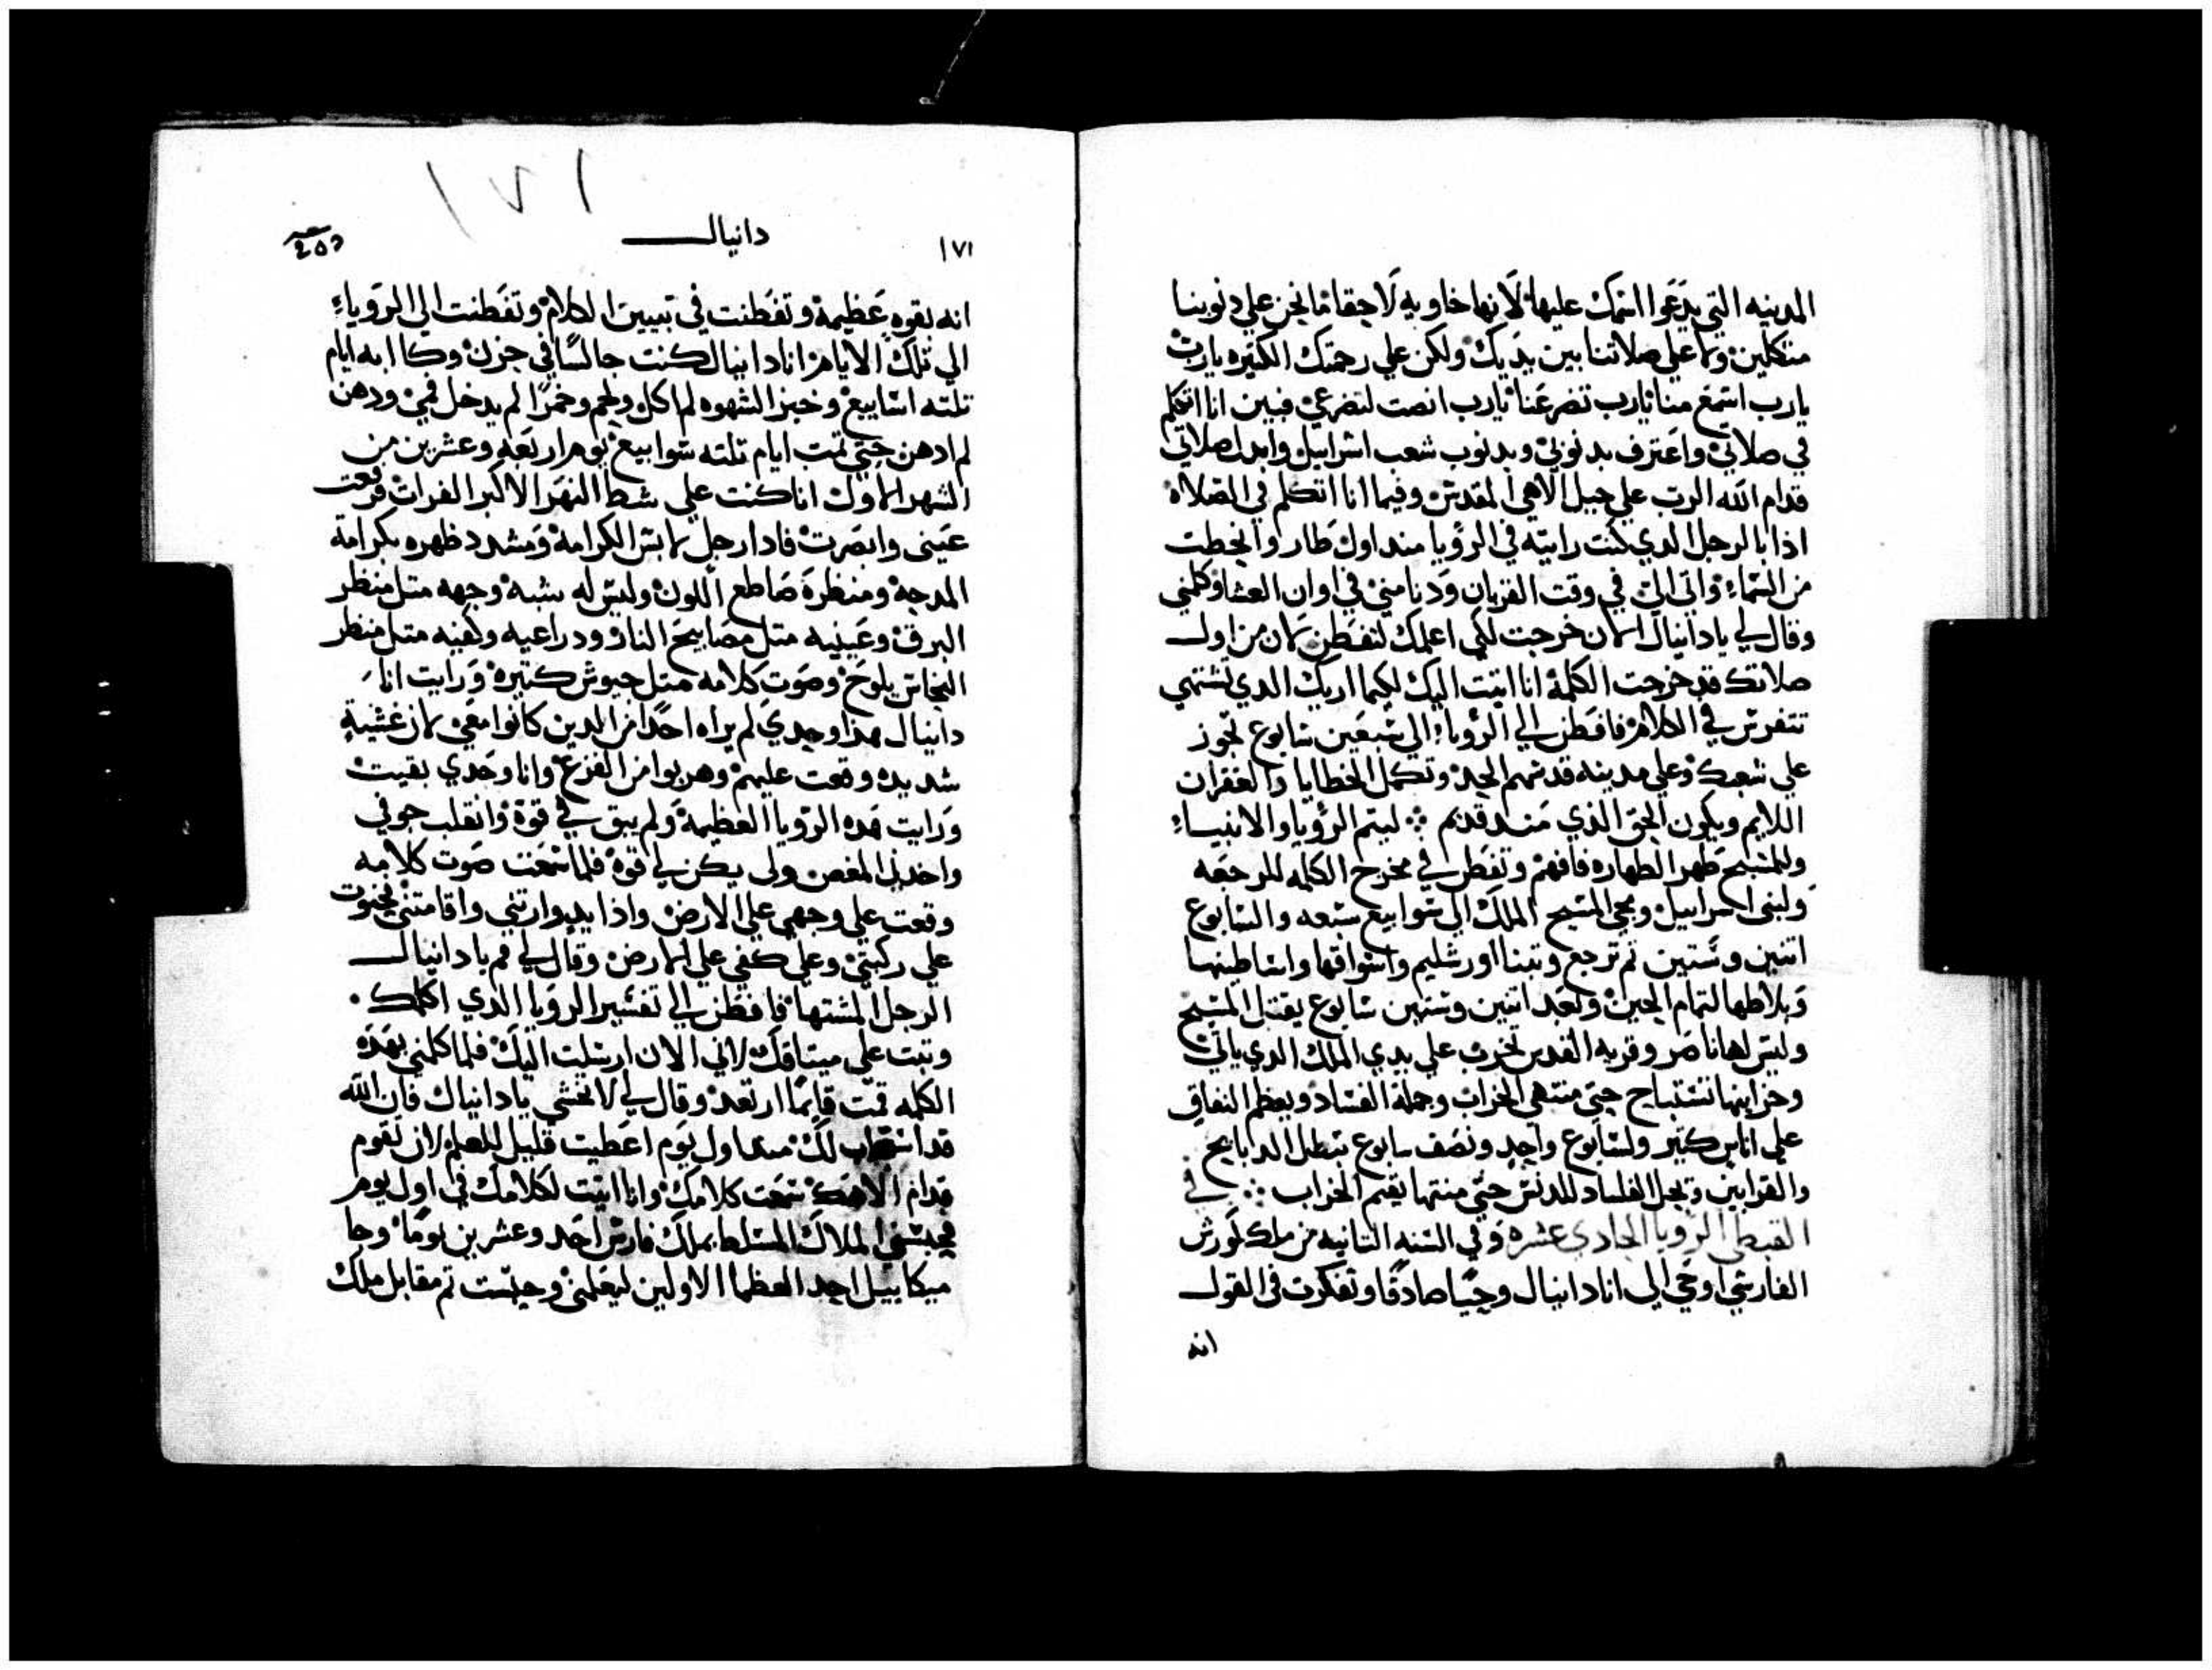 المدينه التي يدعوا اسمك عليها لانها خاويه لاحقا ما نحن علي دنوبنا
متكلين ولا علي صلاتنا بين يديك ولكن علي رحمتك الكتيره يارب
يارب اسمع منا يارب تضرعنا يارب انصت لتضرعي فبين انا اتكلم
في صلاتي واعترف بدنوبي وبدنوب شعب اسراييل وابدل صلاتي
قدام الله الرب علي جبل الاهي المقدس وفيما انا اتكلم في الصلاه
اذا بالرجل الدي كنت رايته في الرؤيا منداول طار وانحطت
من السماء واتى الي في وقت القربان ودنا مني في اوان العشا وكلمني
وقال لي يا دانيال الان خرجت لكي اعلمك لتفطن لان من اول
صلاتك قد خرجت الكلمة انا اتيت اليك لكيما اريك الدي تشتهي
تتفرس في الكلام فافطن الي الرويا الي سبعين سابوع تجوز
علي شعبك وعلي مدينه قدسهم الجد وتكمل الخطايا والغفران
اللايم ويكون الحق الذي مند قديم ❖ ليتم الرؤيا والانبياء
وللمسيح طهر الطهاره فافهم وتفطن في مخرج الكلمه للرجعه
ولبني اسراييل ومجي المسيح الملك الي سوابيع سبعه والسابوع
اتنين وستين تم ترجع وتبنا اورشليم واسواقها واساطينها
وبلاطها لتمام الحين وبعد اتنين وستين سابوع يقتل المسيح
وليس لها ناصر وقريه القدس تخرب علي يدي الملك الدي ياتي
وخزاينها تستباح حتى منتهي الخراب وجملة الفساد ويعظم النفاق
علي اناس كتير ولسابوع واحد ونصف سابوع تبطل الدبايح
والقرابين وتجل الفساد للدنس حتي منتها يقيم الخراب ❖ في
القبطي الرويا الحادي عشره وفي السنه التانيه من ملك كورش
الفارسي اوحي الي انا دانيال وحيا صادقا وتفكرت في القول
انه
١٧١
١٧١ دانيال
انه بقوه عظيمة وتفطنت في تبيين الكلام وتفطنت الي الروياء
الي تلك الايام انا دانيال كنت جالسا في حزن وكاابه ايام
تلته اسابيع وخبز الشهوه لم اكل ولحم وخمرا لم يدخل فمي ودهن
لم ادهن حتي تمت ايام تلته سوابيع يوم اربعه وعشرين من
الشهر الاول انا كنت علي شط النهر الاكبر الفرات فرفعت
عيني وابصرت فادا رجل لابس الكرامة ومشدد ظهره بكرامة
المدجة ومنظره صاطع اللون وليس له شبه وجهه متل منظر
البرق وعينيه متل مصابيح النار ودراعيه وكفيه متل منظر
النحاس يلوح وصوت كلامه متل جيوش كتيرة ورايت انا
دانيال هدا وحدي لم يراه احدا من الدين كانوا معي لان غشية
شديده وقعت عليهم وهربوا من الفزع وانا وحدي بقيت
ورايت هده الرويا العظيمة ولم يبق في قوة وانقلب جوفي
واخدني المغص ولم يكن لي قوة فلما سمعت صوت كلامه
وقعت علي وجهي علي الارض واذا يد وارتني واقامتني فجتوت
علي ركبتي وعلي كفي علي الارض وقال لي قم يا دانيال
الرجل المشتها فافطن الي تفسير الرويا الدي اكلمك
وتبت علي ميتاقك لاني الان ارسلت اليك فلما كلمني بهده
الكلمه قمت قايما ارتعد وقال لي لا تخشي يا دانيال فان الله
قد استجاب لك منداول يوم اعطيت قلبك للعلم لان تقوم
قدام الاهك سمعت كلامك وانا اتيت لكلامك في اول يوم
فحبسني الملاك المسلط بملك فارس احد وعشرين يوما وجا
ميكاييل احد العظما الاولين ليعلمني وحبست تم مقابل ملك